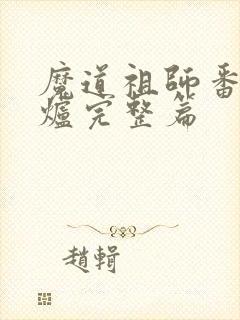 魔道祖師番
爐完整篇
趙輯